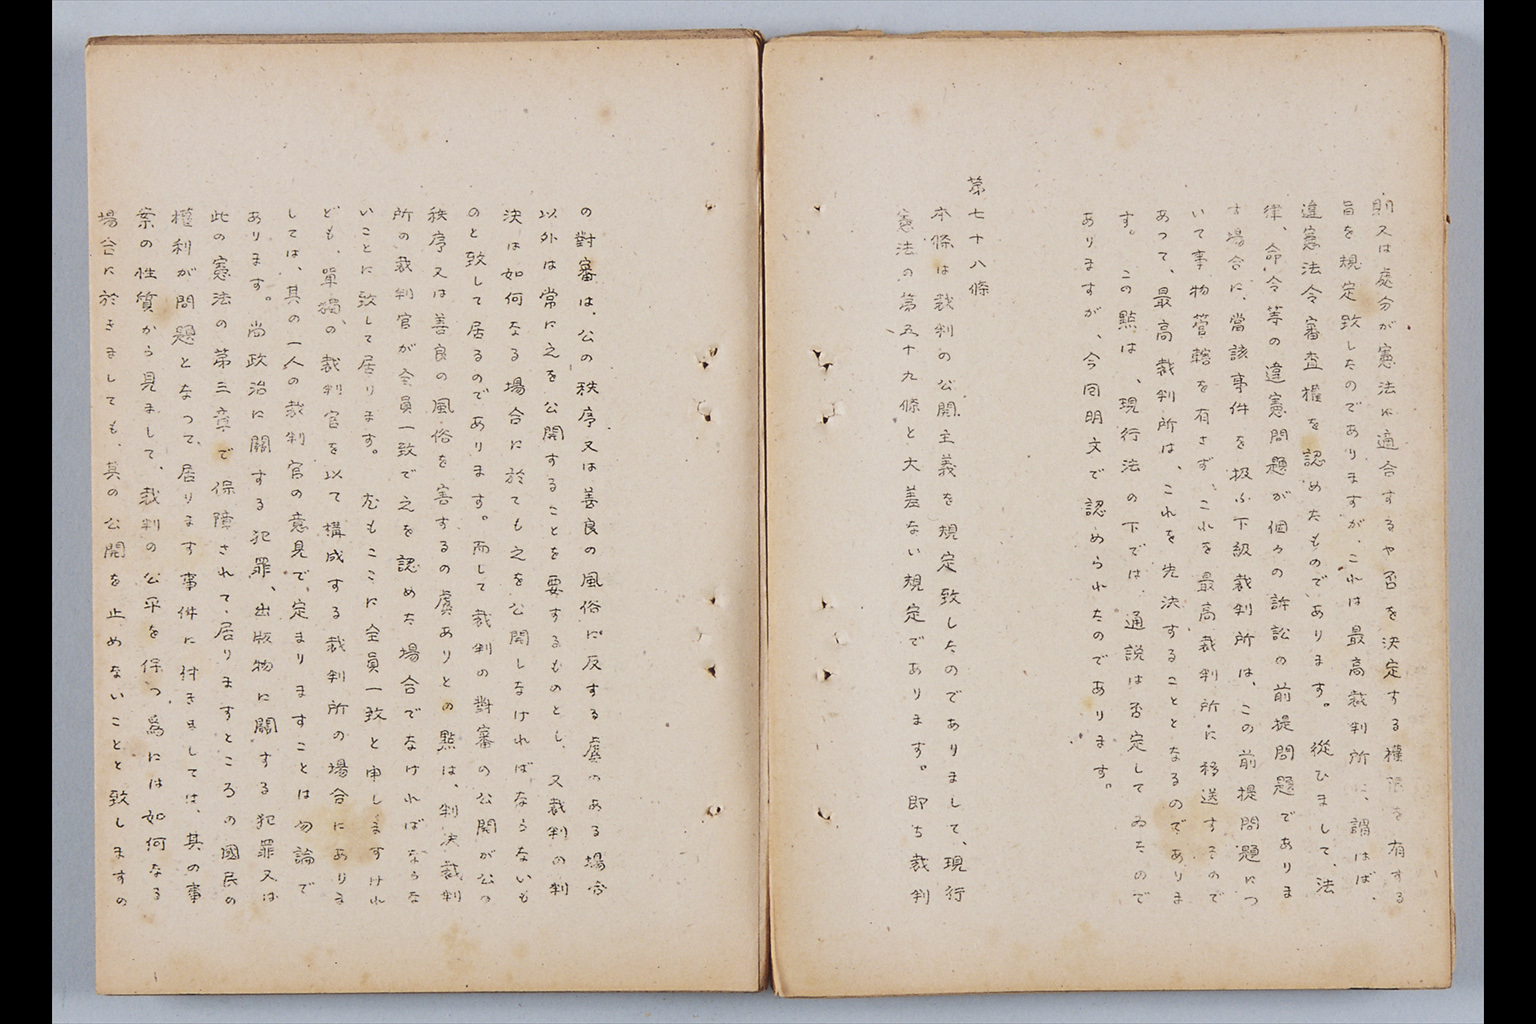 則又は處分が憲法に適合するや否を決定する權限を有する
旨を規定致したのでありますが、これは最高裁判所に、謂はば、
違憲法令審査權を認めたものであります。從ひまして、法
律、命令等の違憲問題が個々の訴訟の前提問題でありま
す場合に、當該事件を扱ふ下級裁判所は、この前提問題につ
いて事物管轄を有さず、これを最高裁判所に移送するので
あつて、最高裁判所は、これを先決することとなるのでありま
す。この點は、現行法の下では、通説は否定してゐたので
ありますが、今囘明文で認められたのであります。
第七十八條
本條は裁判の公開主義を規定致したのでありまして、現行
憲法の第五十九條と大差ない規定であります。即ち裁判
の對審は、公の秩序又は善良の風俗に反する虞のある場合
以外は常に之を公開することを要するものとし、又裁判の判
決は如何なる場合に於ても之を公開しなければならないも
のと致して居るのであります。而して裁判の對審の公開が公の
秩序又は善良の風俗を害するの虞ありとの點は、判決裁判
所の裁判官が全員一致で之を認めた場合でなければならな
いことに致して居ります。尤もここに全員一致と申しますけれ
ども、單獨の裁判官を以て構成する裁判所の場合にありま
しては、其の一人の裁判官の意見で、定まりますことは勿論で
あります。尚政治に關する犯罪、出版物に關する犯罪又は
此の憲法の第三章で保障されて居りますところの國民の
權利が問題となつて、居ります事件に付きましては、其の事
案の性質から見まして、裁判の公平を保つ爲には如何なる
場合に於きましても、其の公開を止めないことと致しますの